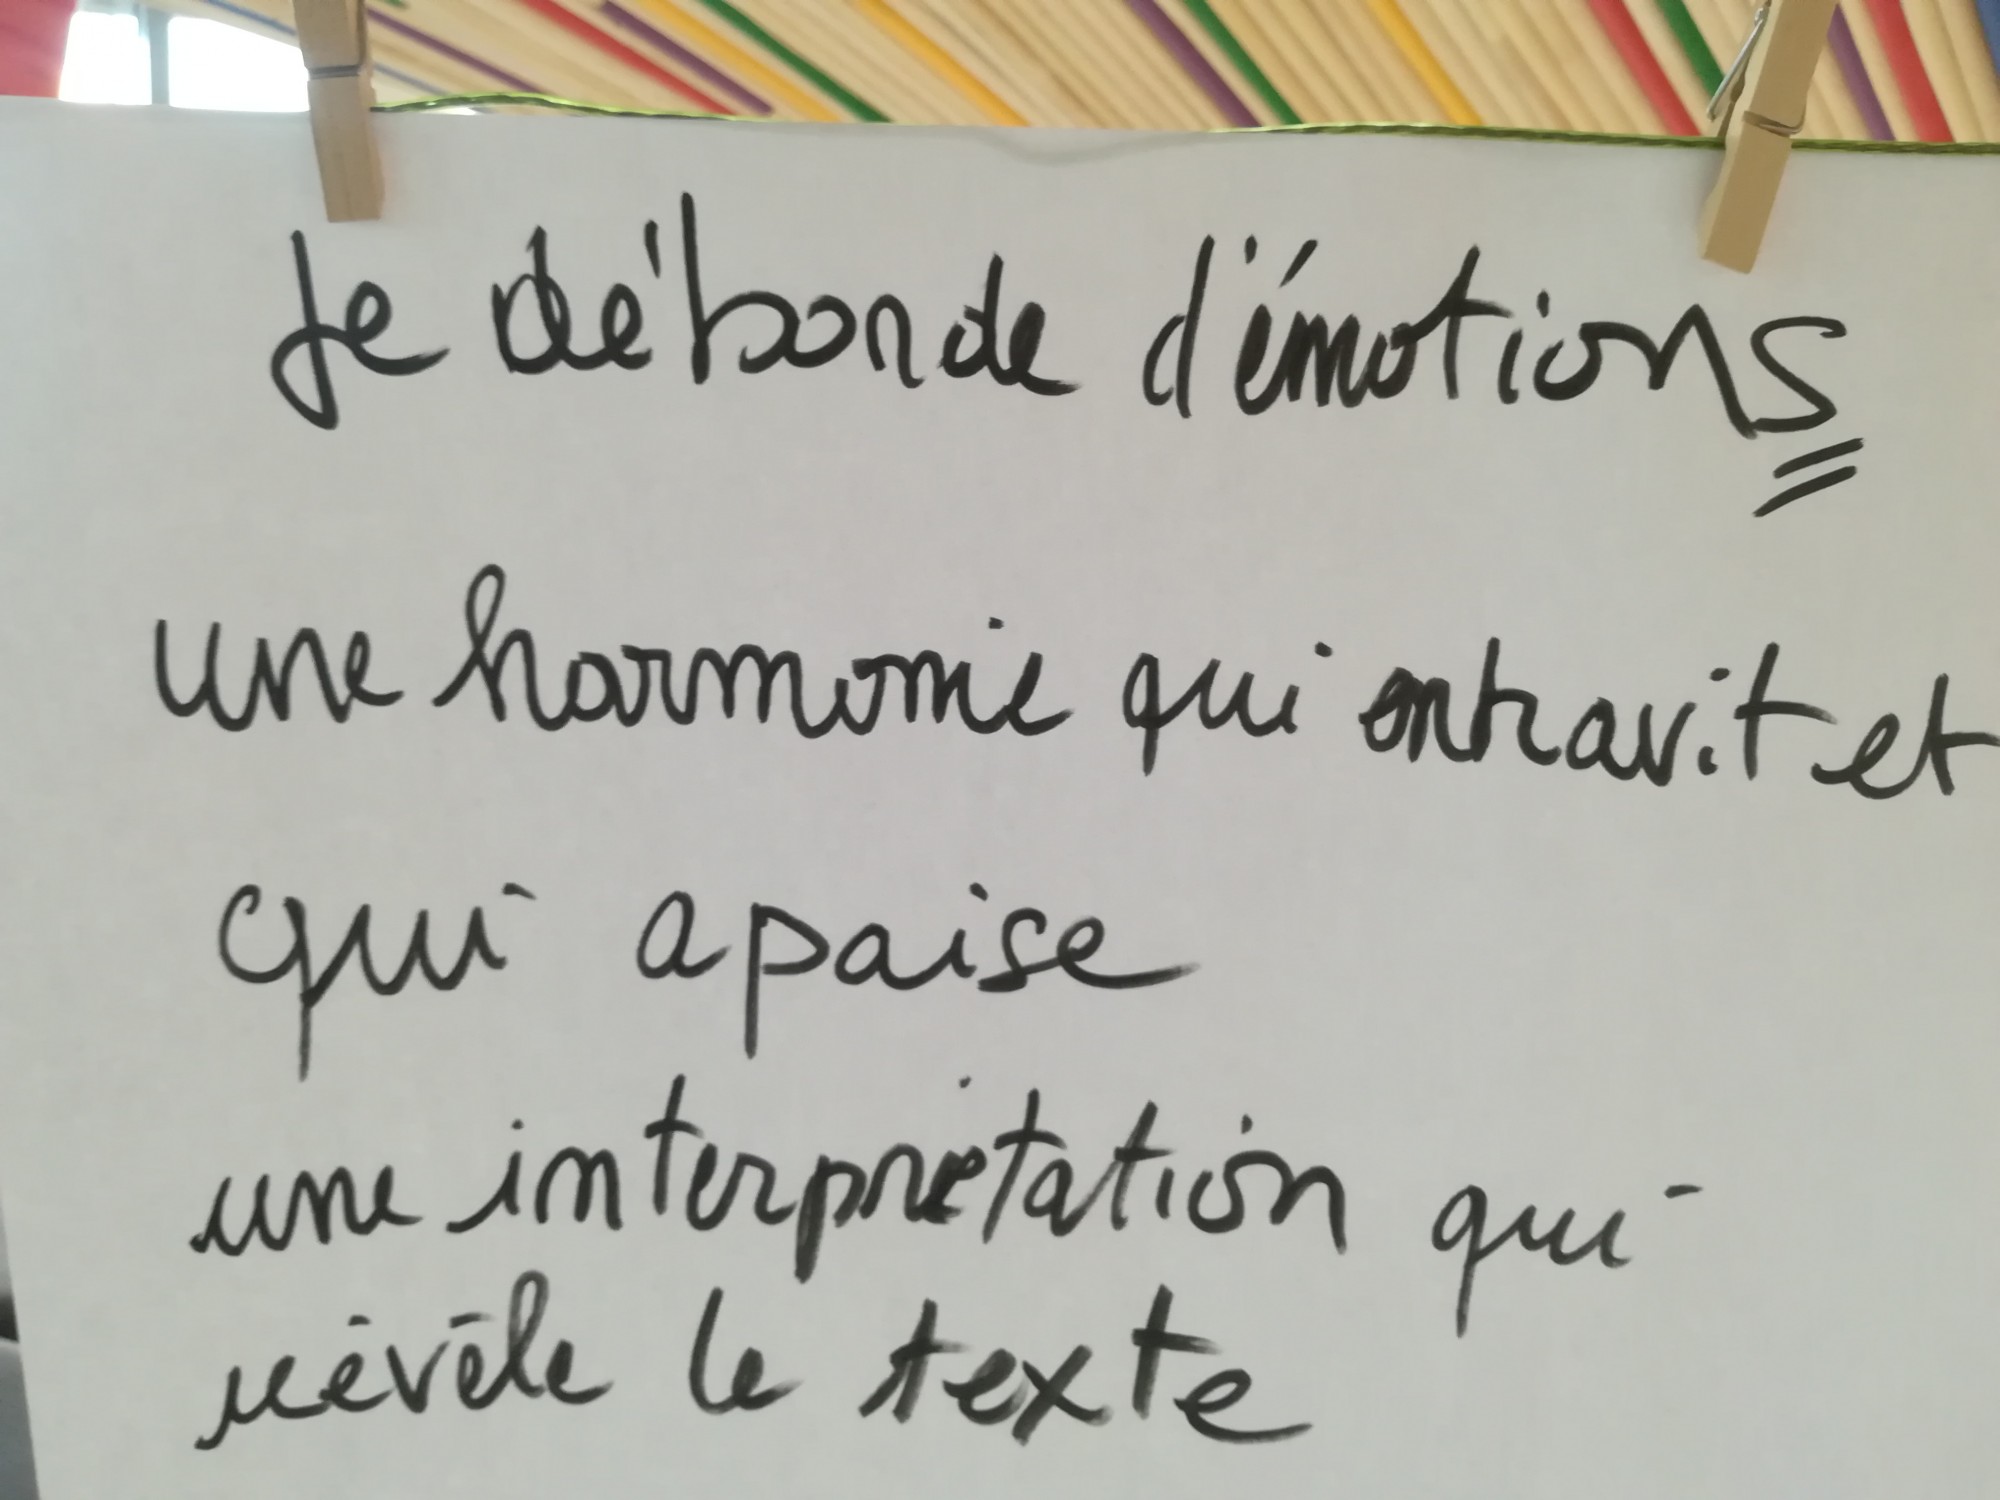 Je déborde d'émotions
une harmonie qui entravit et
qui apaise
une interprétation qui
révèle le texte